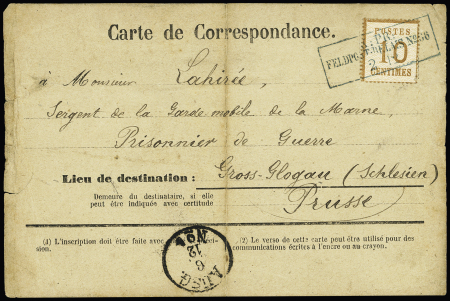 Carte de Correspondance.
POSTES
10
CENTIMES
FELDPOST-RELAIS No 56
à Monsieur Lahirée,
Sergent de la Garde mobile de la Marne,
Prisonnier de Guerre
Lieu de destination: Gross-Glogau (Schlesien)
Demeure du destinataire, si elle
peut être indiquée avec certitude
Prusse
(1) L'inscription doit être faite avec
sion.
(2) Le verso de cette carte peut être utilisé pour des
communications écrites à l'encre ou au crayon.
12
6
AUSG.